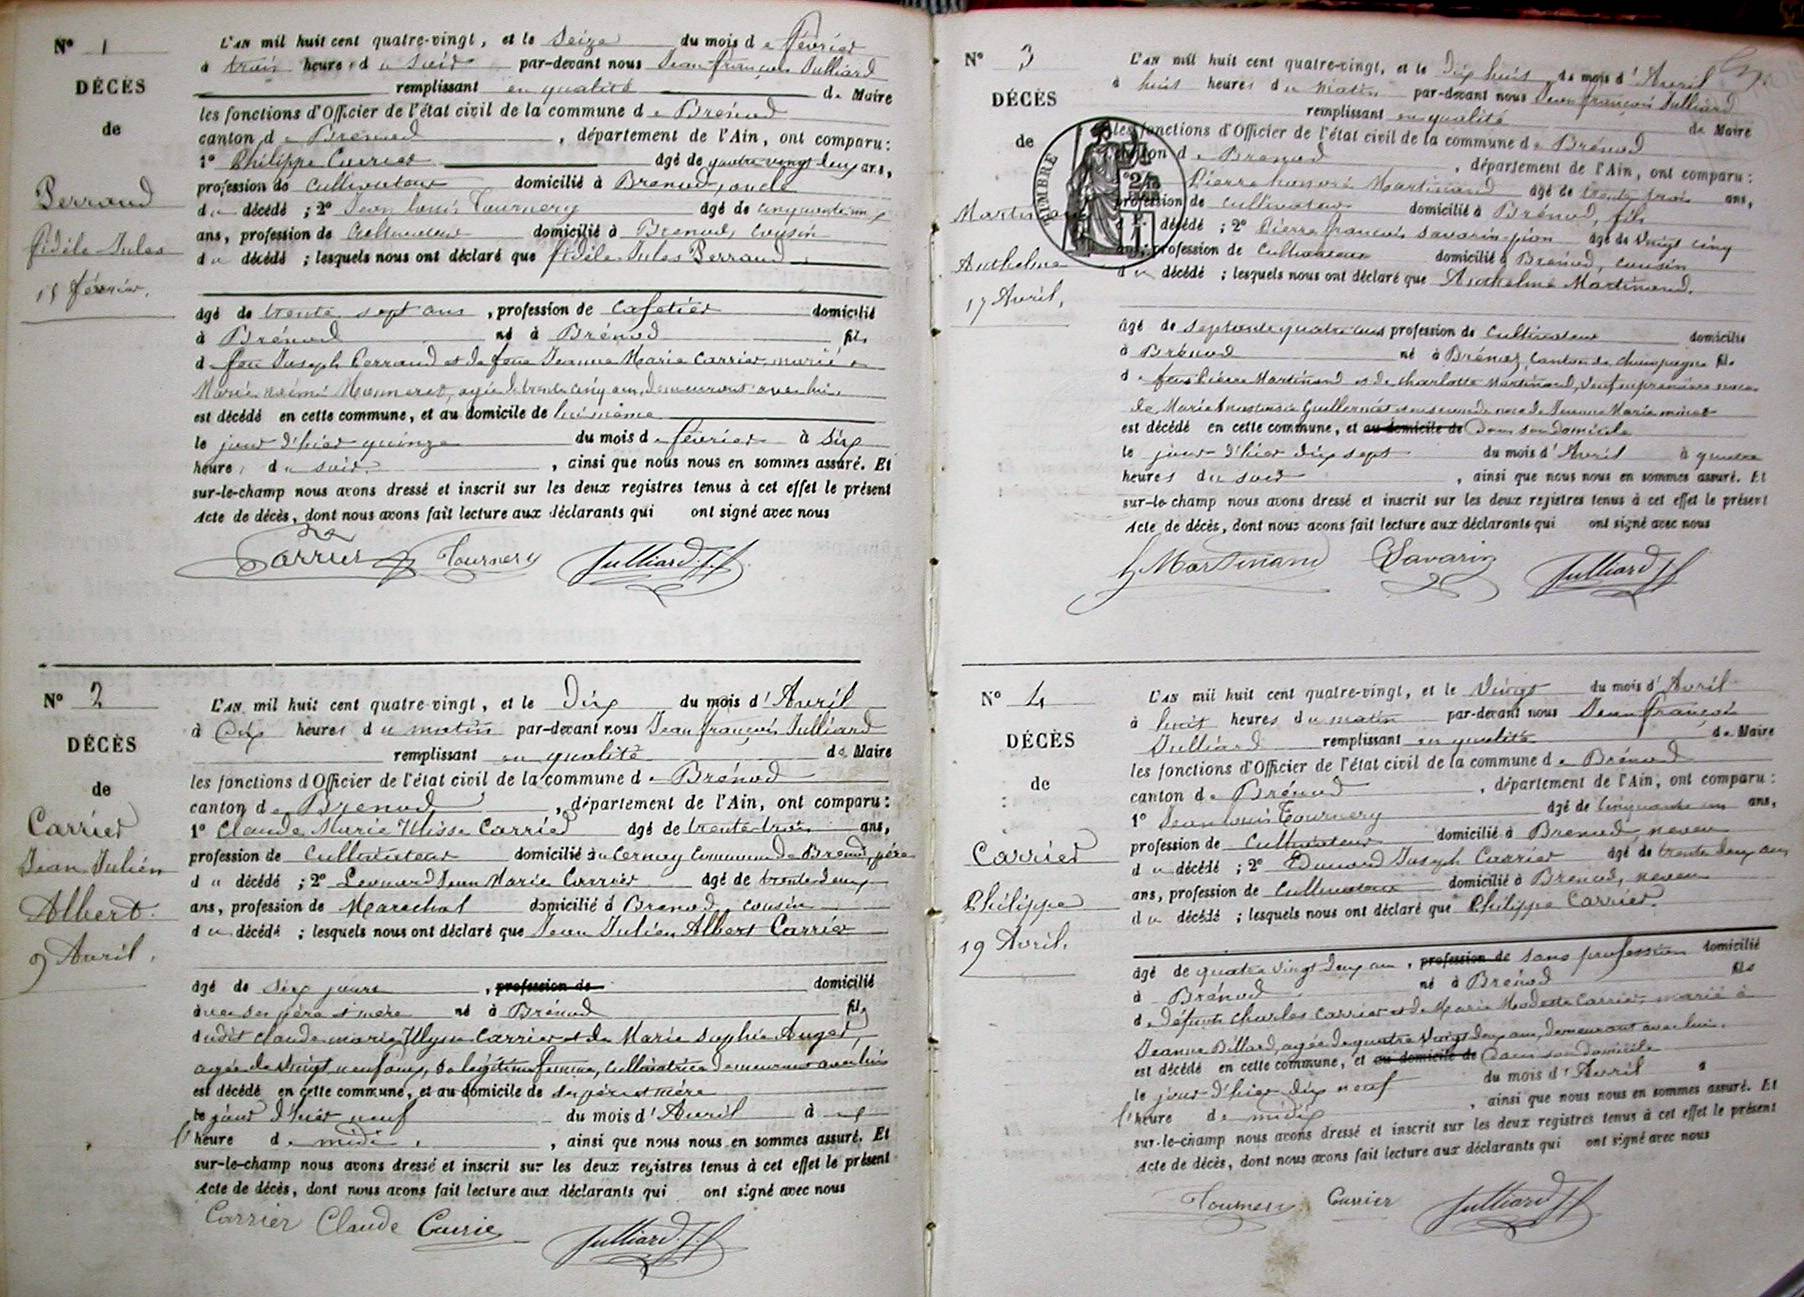 N° 1
DÉCÈS
de
Perraud
fidèle Jules
15 février.
L'AN mil huit cent quatre-vingt, et le seize du mois de février
à trois heures du soir par-devant nous Jean françois Julliard
remplissant en qualité de Maire
les fonctions d'Officier de l'état civil de la commune de Brénod
canton de Brénod, département de l'Ain, ont comparu:
1° Philippe Carrier âgé de quatre-vingt deux ans,
profession de cultivateur domicilié à Brenod, oncle
du décédé; 2° Jean Louis Tournery âgé de cinquante un
ans, profession de Cultivateur domicilié à Brenod, cousin
du décédé; lesquels nous ont déclaré que fidèle Jules Perraud
âgé de trente sept ans, profession de Cafetier domicilié
à Brénod né à Brénod fils
de feu Joseph Perraud et de feue Jeanne Marie Carrier, marié à
Marie Monneret, agée de trente cinq ans, demeurant avec lui
est décédé en cette commune, et au domicile de lui même
le jour d'hier quinze du mois de février à six
heures du soir, ainsi que nous nous en sommes assuré. Et
sur-le-champ nous avons dressé et inscrit sur les deux registres tenus à cet effet le présent
Acte de décès, dont nous avons fait lecture aux déclarants qui ont signé avec nous
Carrier Tournery Julliard J.f.
N° 2
DÉCÈS
de
Carrier
Jean Julien
Albert.
9 Avril.
L'AN mil huit cent quatre-vingt, et le Dix du mois d'Avril
à Dix heures du matin par-devant nous Jean françois Julliard
remplissant en qualité de Maire
les fonctions d'Officier de l'état civil de la commune de Brénod
canton de Brenod, département de l'Ain, ont comparu:
1° Claude Marie Ulisse Carrier âgé de trente-trois ans,
profession de Cultivateur domicilié à Cernay Commune de Brenod, père
du décédé; 2° Leonard Jean Marie Carrier âgé de trente deux
ans, profession de Marechal domicilié à Brenod, cousin
du décédé; lesquels nous ont déclaré que Jean Julien Albert Carrier
âgé de six jours, profession de domicilié
avec ses père et mère né à Brénod fils
dudit Claude marie Ulysse Carrier et de Marie Sophie Auger,
agée de vingt neuf ans, sa légitime femme, cultivatrice demeurant avec lui
est décédé en cette commune, et au domicile de ses père et mère
le jour d'hier neuf du mois d'Avril à
l'heure de midi, ainsi que nous nous en sommes assuré. Et
sur-le-champ nous avons dressé et inscrit sur les deux registres tenus à cet effet le présent
Acte de décès, dont nous avons fait lecture aux déclarants qui ont signé avec nous
Carrier Claude Carrier Julliard J.f.
N° 3
DÉCÈS
de
Martinand
Anthelme
17 Avril,
L'AN mil huit cent quatre-vingt, et le Dix huit du mois d'Avril
à huit heures du matin par-devant nous Jean françois Julliard
remplissant en qualité de Maire
les fonctions d'Officier de l'état civil de la commune de Brénod
canton de Brenod, département de l'Ain, ont comparu:
TIMBRE
Pierre honoré Martinand âgé de trente trois ans,
profession de cultivateur domicilié à Brénod, fils
du décédé; 2° Pierre françois Savarin-pion âgé de vingt cinq
ans, profession de Cultivateur domicilié à Brénod, cousin
du décédé; lesquels nous ont déclaré que Anthelme Martinand.
âgé de septante quatre ans profession de cultivateur domicilié
à Brénod né à Brénaz, canton de champagne fils
de feu Pierre Martinand et de charlotte Martinand, veuf en première noce
de Marie Anastasie Guillermet et en seconde noce de Jeanne Marie
est décédé en cette commune, et au domicile de Dans son domicile
le jour d'hier dix sept du mois d'Avril à quatre
heures du soir, ainsi que nous nous en sommes assuré. Et
sur-le-champ nous avons dressé et inscrit sur les deux registres tenus à cet effet le présent
Acte de décès, dont nous avons fait lecture aux déclarants qui ont signé avec nous
h Martinand Savarin Julliard J f
N° 4
DÉCÈS
de
Carrier
Philippe
19 Avril.
L'AN mil huit cent quatre-vingt, et le vingt du mois d'Avril
à huit heures du matin par-devant nous Jean françois
Julliard remplissant en qualité de Maire
les fonctions d'Officier de l'état civil de la commune de Brénod
canton de Brénod, département de l'Ain, ont comparu:
1° Jean Louis Tournery âgé de Cinquante un ans,
profession de Cultivateur domicilié à Brenod, neveu
du décédé; 2° Edouard Joseph Carrier âgé de trente deux ans
ans, profession de Cultivateur domicilié à Brenod, neveu
du décédé; lesquels nous ont déclaré que Philippe Carrier.
âgé de quatre vingt deux ans, profession de sans profession domicilié
à Brénod né à Brénod fils
de défunts Charles Carrier et de Marie Modeste Carrier, marié à
Jeanne Billard, agée de quatre vingt deux ans, demeurant avec lui.
est décédé en cette commune, et au domicile de Dans son domicile
le jour d'hier dix neuf du mois d'Avril à
l'heure de midi, ainsi que nous nous en sommes assuré. Et
sur-le-champ nous avons dressé et inscrit sur les deux registres tenus à cet effet le présent
Acte de décès, dont nous avons fait lecture aux déclarants qui ont signé avec nous
Tournery Carrier Julliard J f